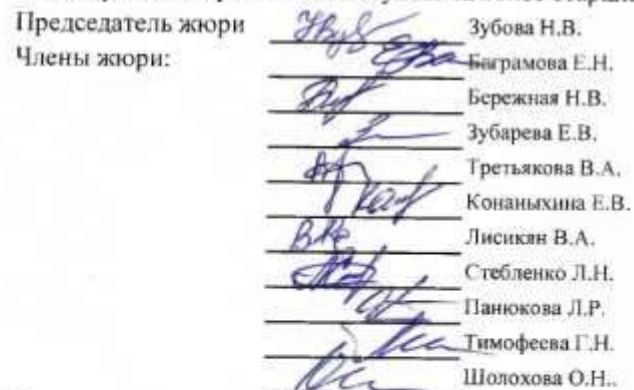 Председатель жюри Зубова Н.В.
Члены жюри: Баграмова Е.Н.
Бережная Н.В.
Зубарева Е.В.
Третьякова В.А.
Конаныхина Е.В.
Лисикян В.А.
Стебленко Л.Н.
Панюкова Л.Р.
Тимофеева Г.Н.
Шолохова О.Н..